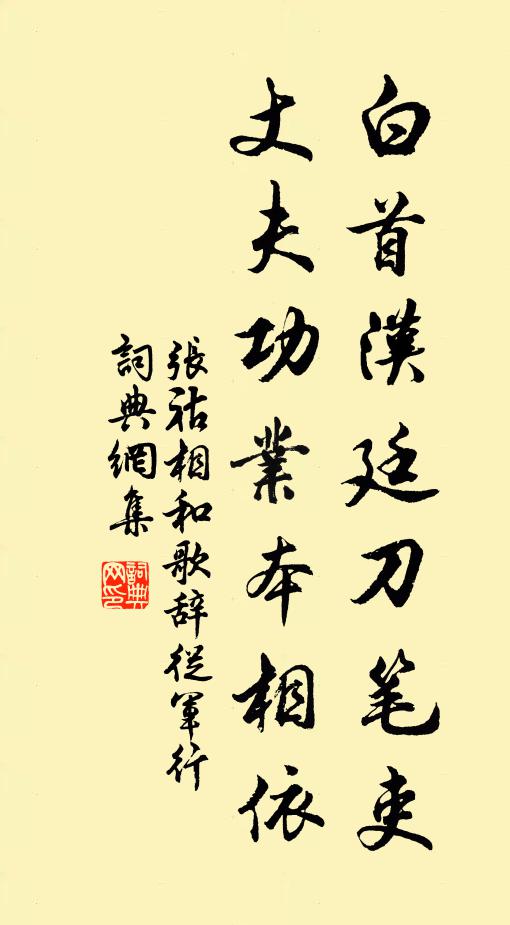 白首漢廷刀笔吏
丈夫功業本相依
張祜相和歌辞從軍行
詞典網集
詞典网印